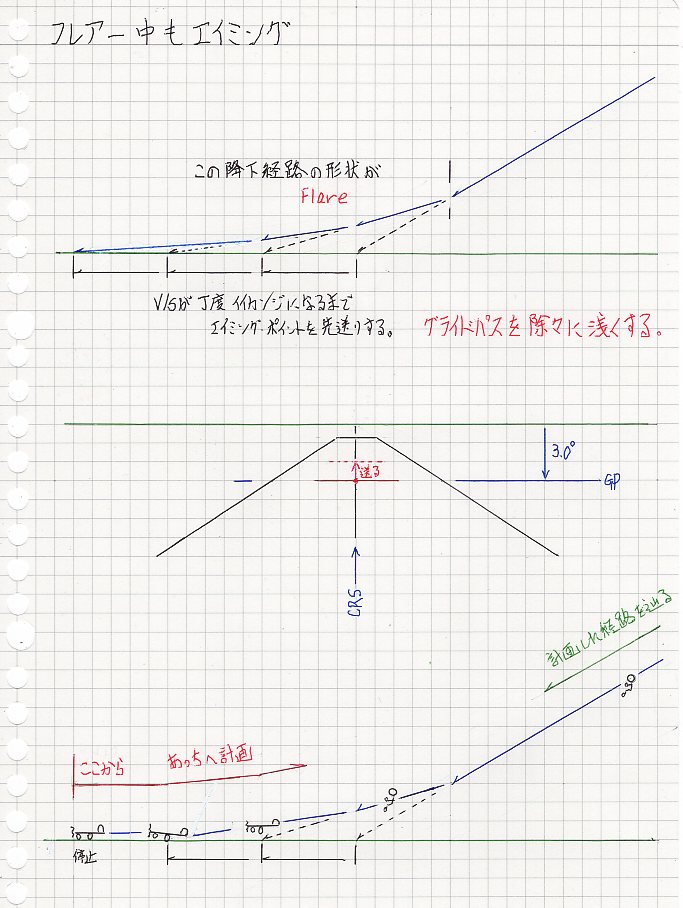 フレアー中もエイミング
この降下経路の形状が
Flare
V/Sが丁度イイカンジになるまで
エイミングポイントを先送りする。
グライドパスを除々に浅くする。
3.0°
送る
GP
CRS
計画した経路を辿る
ここから
あっちへ計画
停止